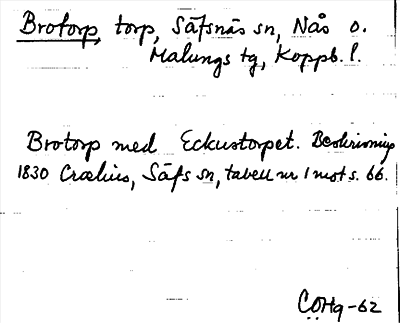 Brotorp, torp, Säfsnäs sn, Nås o.
Malungs tg, Koppb. l.
Brotorp med Eckustorpet. Beskrivning
1830 Crælius, Säfs sn, tabell nr 1 mot s. 66.
COHq-62